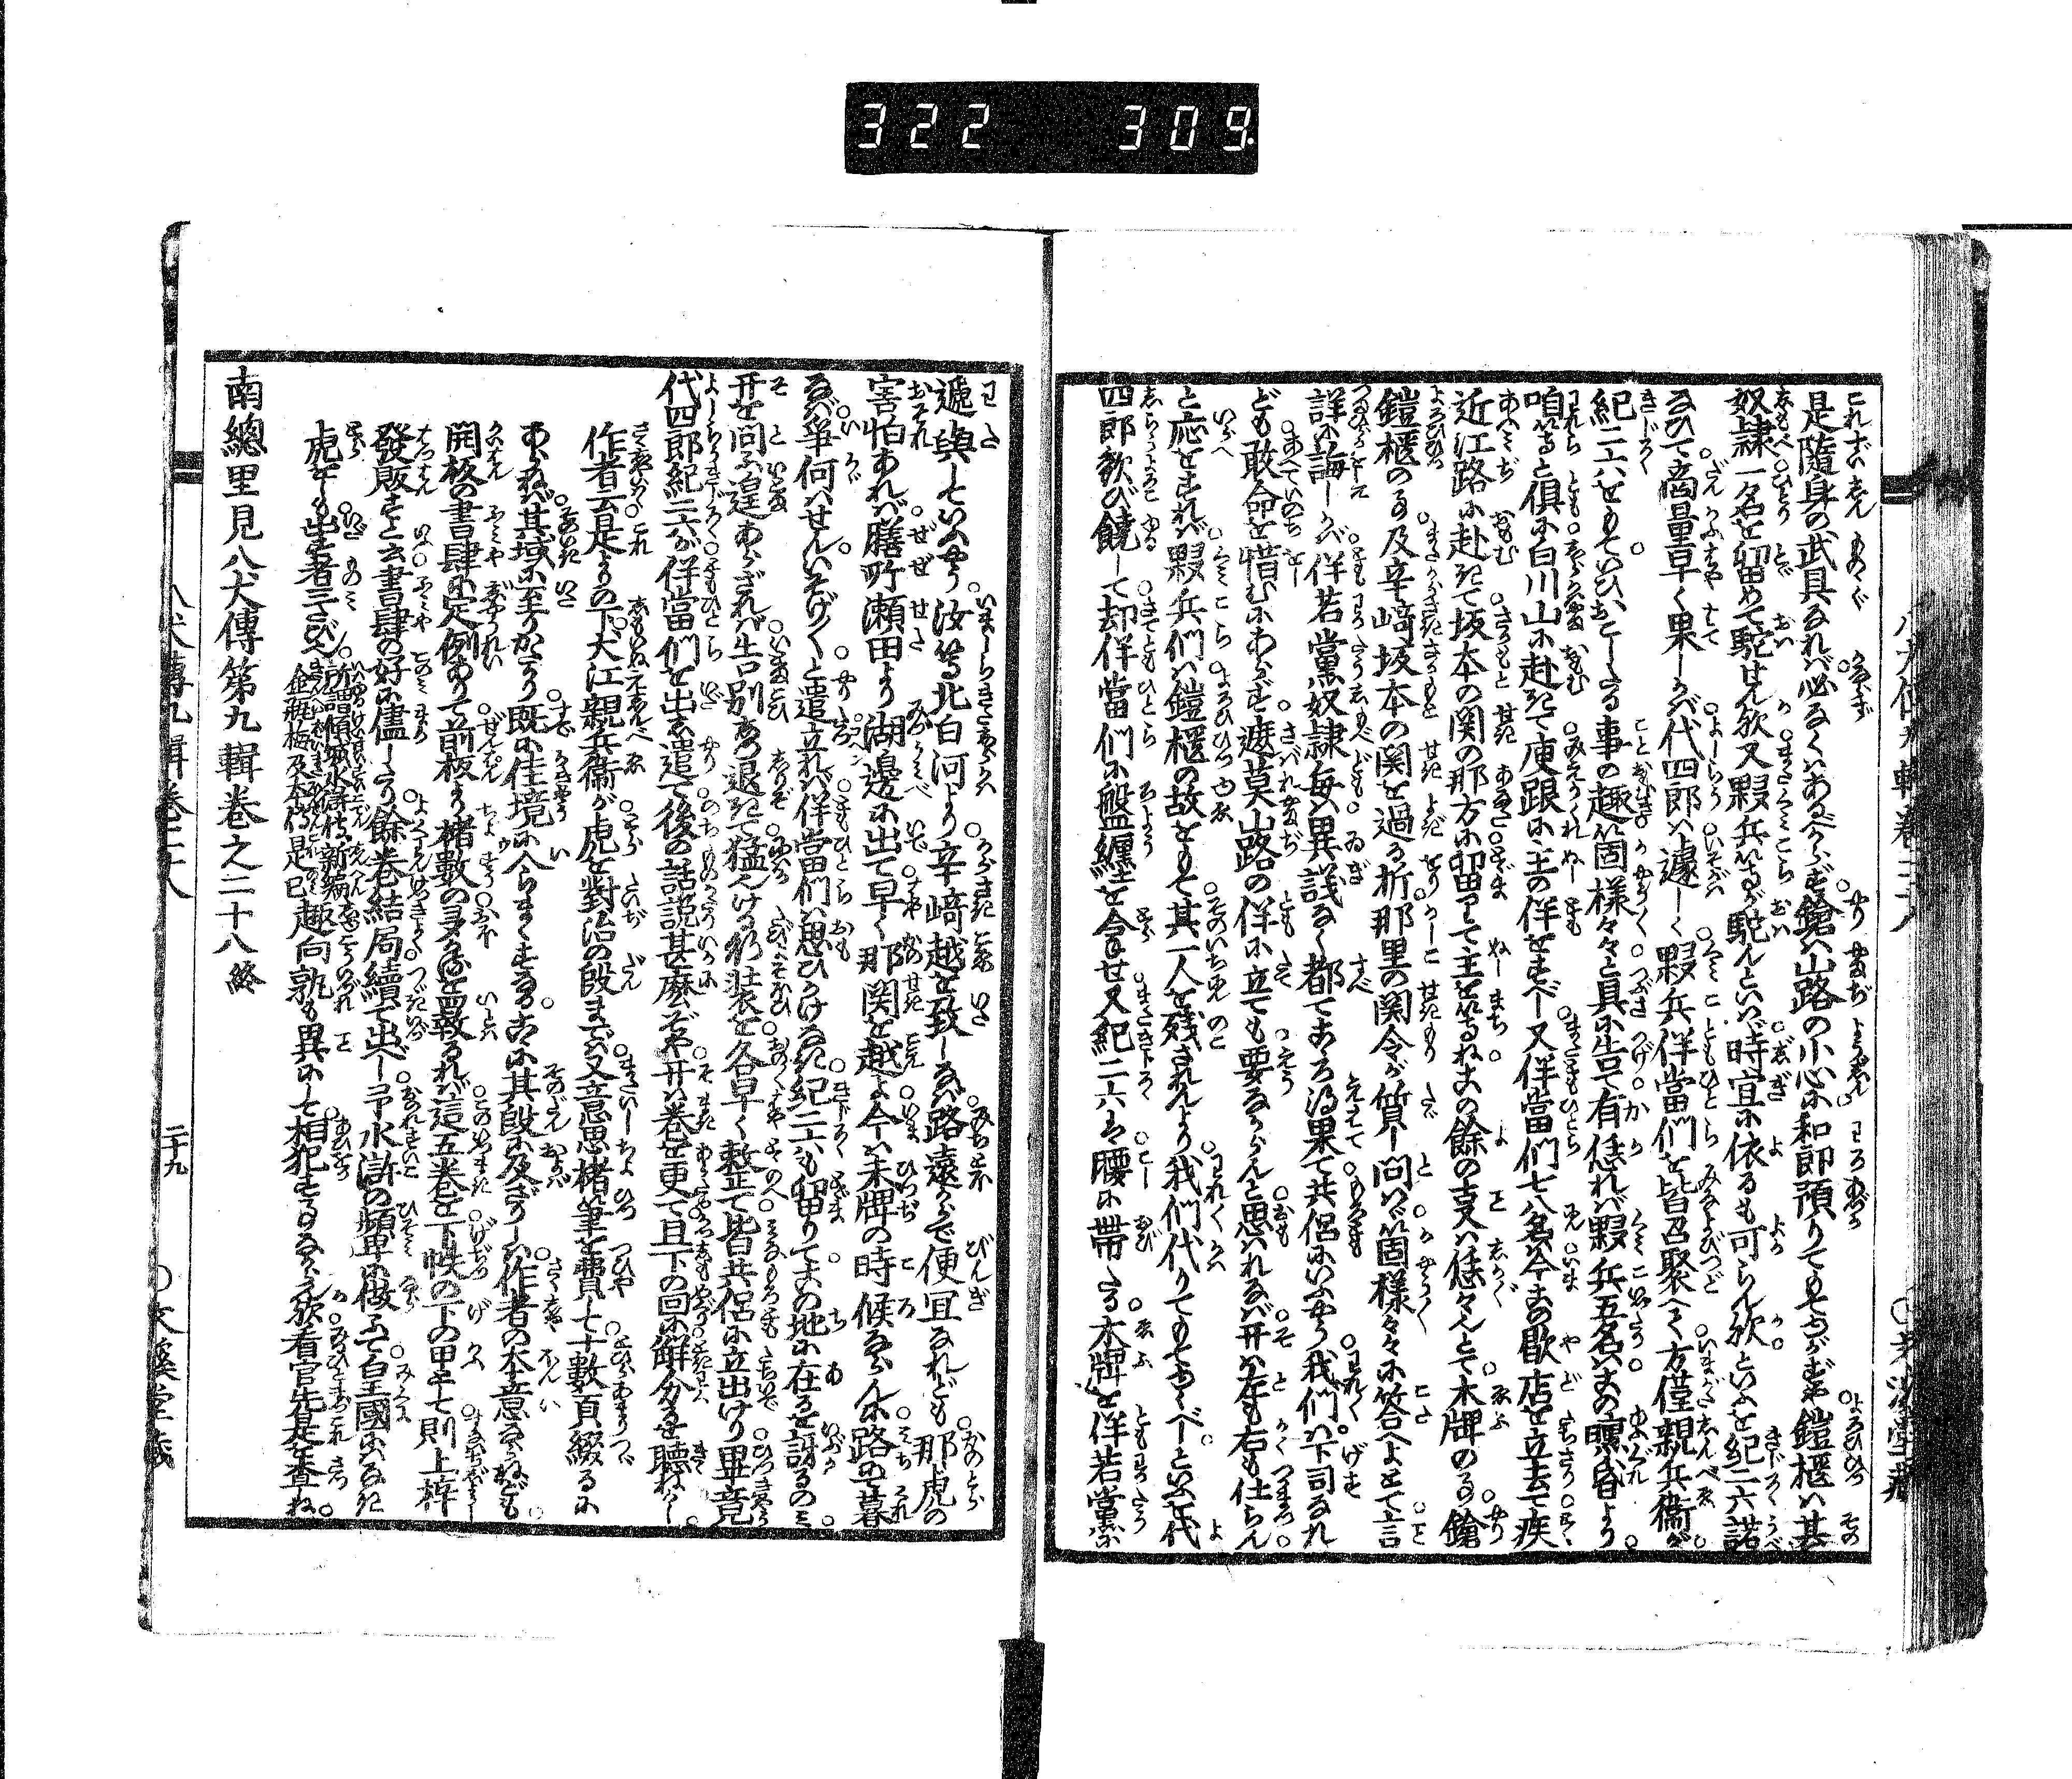 322 309
是隨身の武具なれバ必なくハあるべからず鎗ハ山路の小心に和郎預りてもてゆがずや鎧櫃ハ某
奴隷一名を留めて駝せん欤又夥兵等が駝んといハヾ時宜に依るも可らん欤といふを紀二六諾
なひて商量早く果しかバ代四郎ハ遽しく夥兵伴當們を皆召聚へて方僅親兵衛が
紀二六をもていひおこしたる事の趣箇様々々と具に告て有恁れバ夥兵五名ハこの曛昏より
咱等と倶に白川山に赴きて東跟に主の伴をすべし又伴當們七八名ハ今この歇店を立去て疾
近江路に赴きて坂本の関の那方に留りて主を等ねこの餘の支ハ恁々んとて木牌の事鎗
鎧櫃の事及辛崎坂本の関を過る折那里の関令が質し問ハヾ箇様々々に答へよとて言
詳に誨しかバ伴若黨奴隷毎ハ異議なく都てこゝろ得果て共侶にいふやう我們ハ下司なれ
ども敢命を惜むにあらず遮莫山路の伴に立ても要なからんと思ハれなバ开ハ左も右も仕らん
と応をすれバ夥兵們ハ鎧櫃の故をもて其一人を残されんより我們代りてもてゆくべしといふを代
四郎歓び饒して却伴當們に盤纏を食せ又紀二六ハ腰に帶たる木牌を伴若黨に
遞與していふやう汝等北白河より辛崎越を致しなバ路遠からで便宜なれども那虎の
害怕あれバ膳所瀬田より湖邊に出て早く那関を越よ今ハ未牌の時候ならんに路の暮
なバ箏何ハせんいそげ〱と遣立れバ伴當們ハ思ひかけなき紀二六も留りてこの地に在るを訝るのミ
开を問ふ遑あらざれバ告別しつゝ退きて猛かける行装を各早く整て皆共侶に立出けり畢竟
代四郎紀二六が伴當們を出し遣て後の話説甚麽ぞや开ハ巻を更て且下の回に解分るを聴ねかし
作者云是よりの下犬江親兵衛が虎を對治の段までハ又立意思楮筆を費して十數頁綴るに
あらねバ其域に至りかたかり既に佳境に入らまくするものから只其段に及ざりしハ作者の本意ならねども
開板の書肆に定例ありて前板より楮數の多なるを嫌るれバ這五巻を下帙の下の甲号して則上梓
發販すと云書肆の好に儘したり餘巻結局續て出べし予水滸の顰に倣ふて皇國になき
虎をしも出す者三たび所謂傾城水滸伝新編金瓶梅及本伝是已趣向孰も異にして相犯すことなからん欤看官先是を査ね
南總里見八犬傳第九輯巻之二十八終
八犬傳九輯巻二十八
二十九
○文溪堂藏